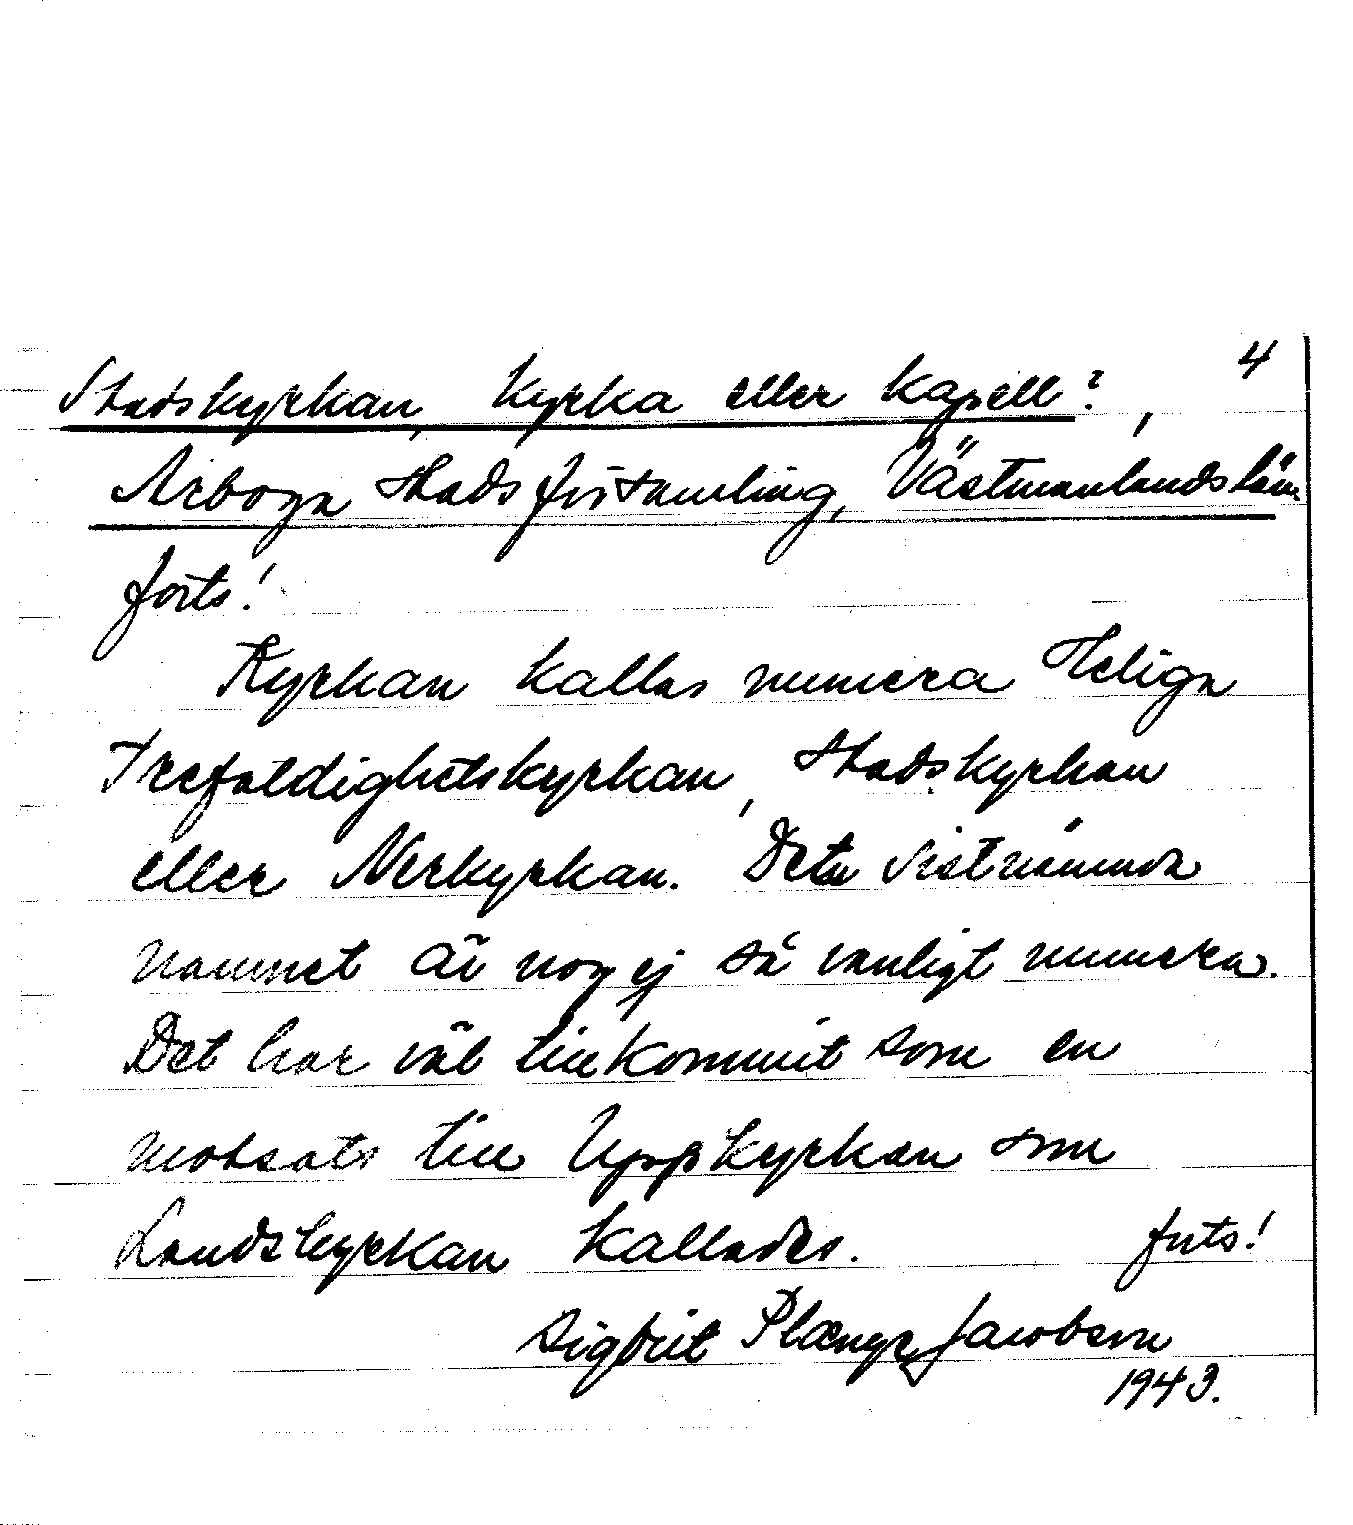 4
Stadskyrkan, kyrka eller kapell?,
Arboga stadsförsamling, Västmanlands län
forts!
Kyrkan kallas numera Heliga
Trefaldighetskyrkan, Stadskyrkan
eller Nerkyrkan. Detta sistnämnda
namnet är nog ej så vanligt numera.
Det har väl tillkommit som en
motsats till Uppkyrkan som
Landskyrkan kallades. forts!
Sigbrit Plænge Jacobson
1943.